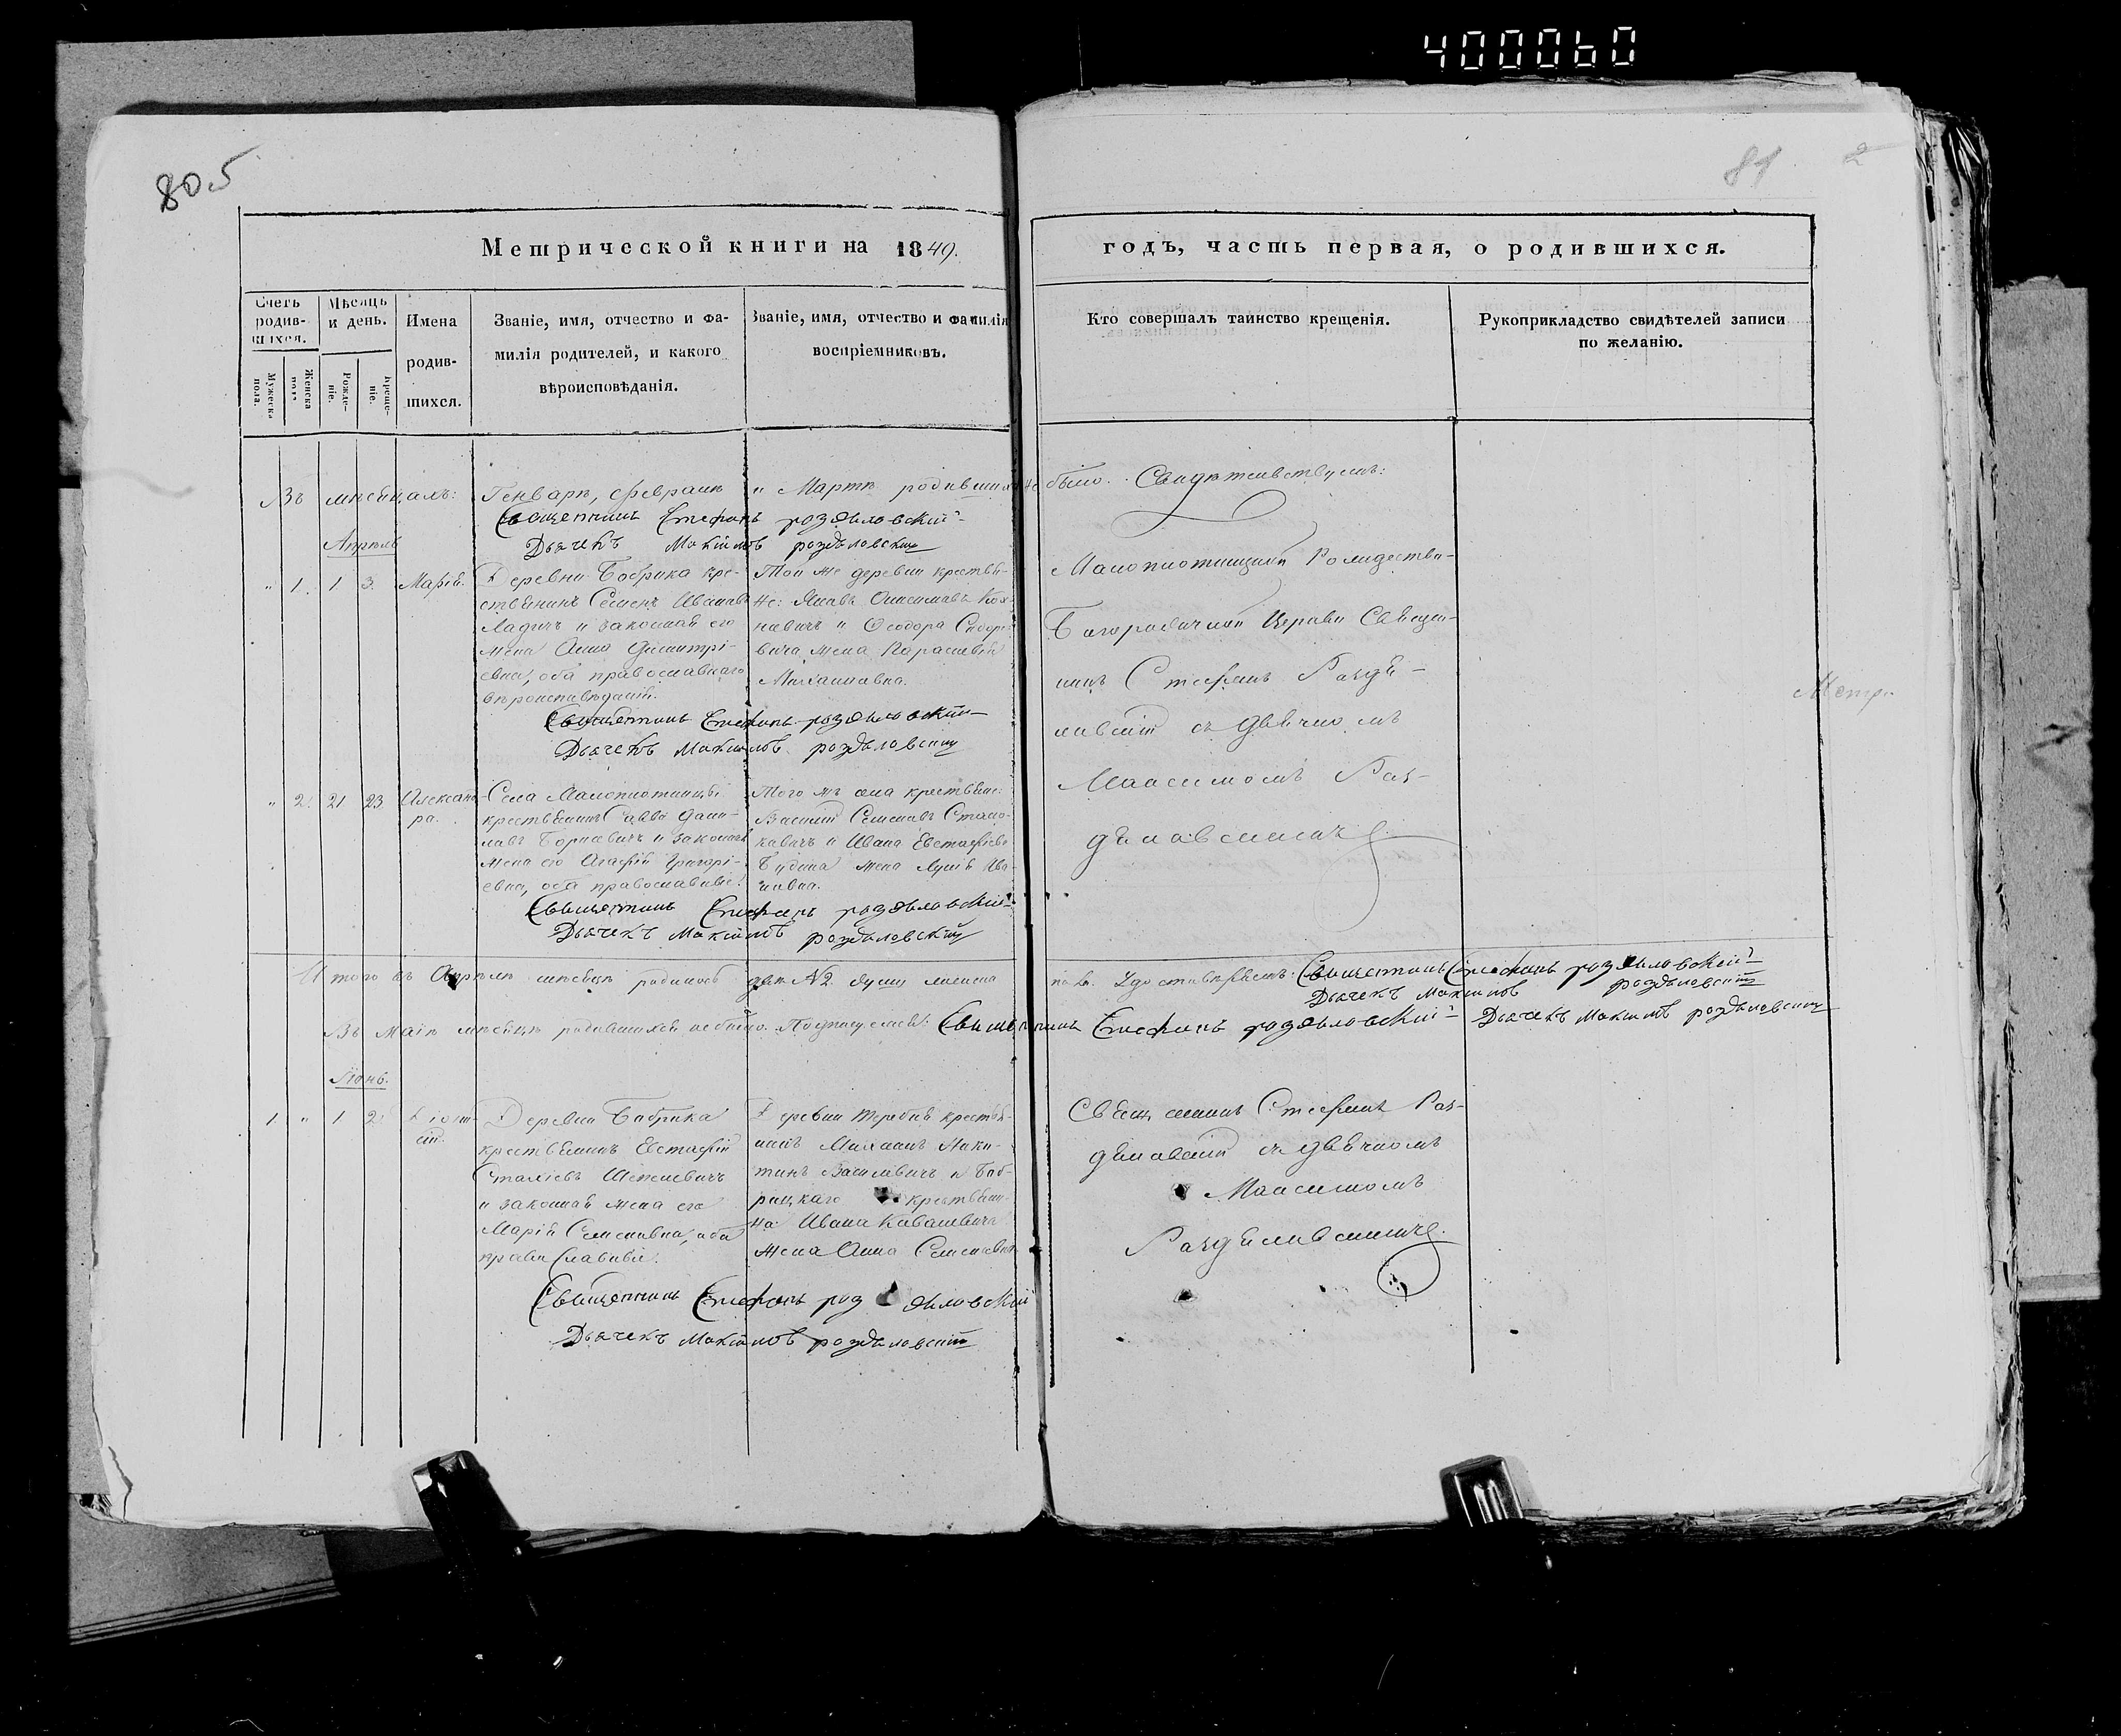 4000060
80.5
81 2
Метрической книги на 1849.
годъ, часть первая, о родившихся.
Счетъ родив-шихся.
Мужеска пола.
Женска пола
Мѣсяцъ и день.
Рожде-ніе.
Креще-ніе.
Имена
родив-
шихся.
Званіе, имя, отчество и фа-
милія родителей, и какого
вѣроисповѣданія.
Званіе, имя, отчество и фамилія
воспріемниковъ.
Кто совершалъ таинство крещенія.
Рукоприкладство свидѣтелей записи
по желанію.
Въ мѣсяцахъ: Генварѣ, Февралѣ и Мартѣ родившихся не было. Свидѣтельствуемъ:
Священникъ Стефанъ Роздяловскій
Дьячекъ Максимъ Роздяловскій
Апрѣль
" 1. 1. 3. Марія.
Деревни Бобрика кре-
стьянинъ Семенъ Ивановъ
и законная его
жена Анна Димитрі-
евна, оба православнаго
вѣроисповѣданія.
Той же деревни крестья-
не:
и Феодора Сидоро-
вича жена Параскевія
Михаиловна.
Малоплотницкой Рождество-
Богородичной Церкви Священ-
никъ Стефанъ Раздя-
ловскій съ дьячкомъ
Максимомъ Раз-
дяловскимъ
Священникъ Стефанъ Роздяловскій
Дьячекъ Максимъ Роздяловскій
Метр.
" 2. 21 23 Александ-
ра.
Села Малоплотницы
крестьянинъ Савва Дани-
ловъ и законная
жена его Агафія Григорі-
евна, оба православные.
Того жъ села крестьяне:
Василій Семеновъ
и Ивана Евстафіева
жена Луція Ива-
новна.
Священникъ Стефанъ Роздяловскій
Дьячекъ Максимъ Роздяловскій
Итого въ Апрѣлѣ мѣсяцѣ родилось двѣ №2 души женска
пола. Удостовѣряемъ: Священникъ Стефанъ Роздяловскій
Дьячекъ Максимъ Роздяловскій
Въ Маѣ мѣсяцѣ родившихся не было. Подписуемся: Священникъ Стефанъ Роздяловскій Дьячекъ Максимъ Роздяловскій
Іюнь.
1 " 1 2
Деревни Бобрика
крестьянинъ Евстафій
и законная жена его
Марія Семеновна, оба
православные.
Деревни Теребня крестья-
нинъ Михаилъ Ники-
тинъ Василевичъ и Боб-
рицкаго крестьяни-
на Ивана Ковалевича
жена Анна Семеновна
Священникъ Стефанъ Раз-
дяловскій съ дьячкомъ
Максимомъ
Раздяловскимъ.
Священникъ Стефанъ Роздяловскій
Дьячекъ Максимъ Роздяловскій